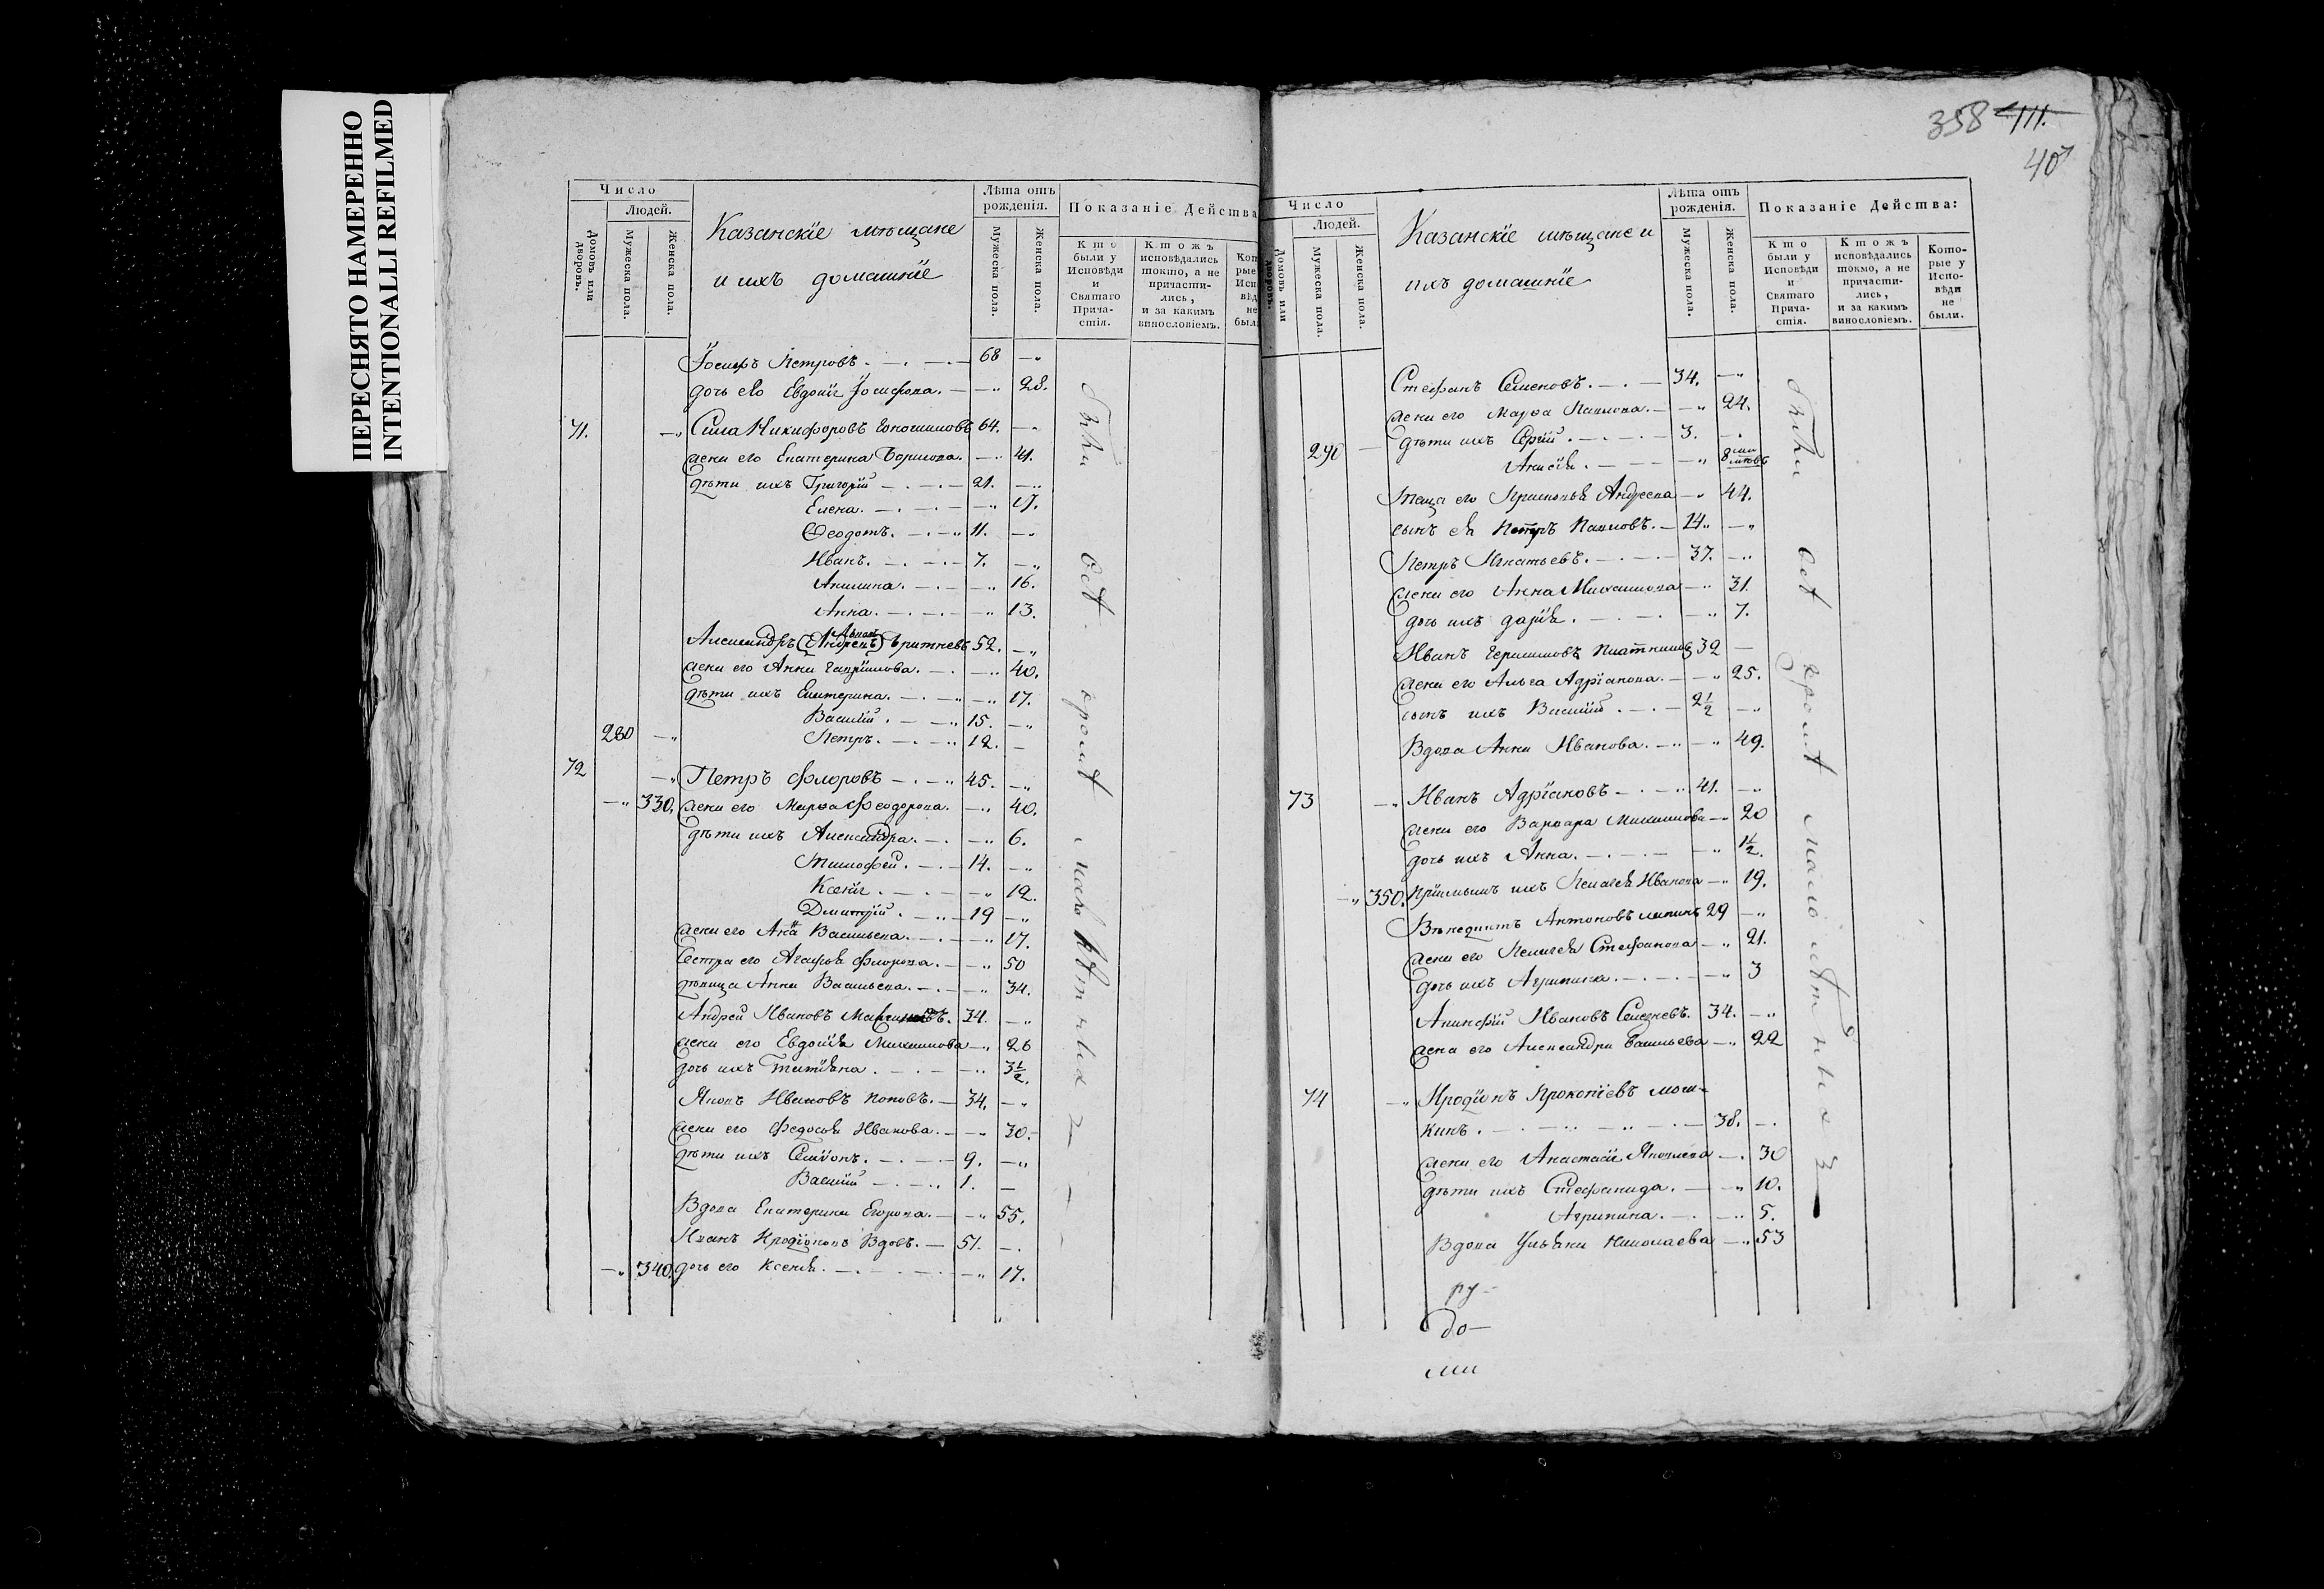 ПЕРЕСНЯТО НАМЕРЕННО
INTENTIONALLI REFILMED
Число
Людей.
Домовъ или дворовъ.
Мужеска пола.
Женска пола.
Казанскїе мѣщане
и ихъ домашнїе
Лѣта отъ рожденїя.
Мужеска пола.
Женска пола.
Показанїе Действа
Кто были у Исповѣди и Святаго Причастїя.
Ктожъ исповѣдались токмо, а не причастились, и за какимъ винословїемъ.
Іосифъ Петровъ. 68
дочь его Евдокїя Іосифова. 28.
71. Сила Никифоровъ 64.
жена его Екатерина Борисова. 41.
дѣти ихъ Григорїй 21.
Елена. 17.
Ѳеодотъ. 11.
Иванъ. 7.
Акилина. 16.
Анна. 13.
Александръ 52.
жена его Анна Гаврїилова. 40.
дѣти ихъ Екатерина. 17.
Василїй. 15.
280 Петръ. 12.
72 Петръ Флоровъ 45.
330. жена его Марѳа Феодорова. 40.
дѣти ихъ Александра. 6.
Тимофей. 14.
Ксенїя. 12.
Дмитрїй. 19
жена его Анна Васильева. 17.
Сестра его Агафья Флорова. 50
дѣвица Анна Васильева. 34.
Андрей Ивановъ 34.
жена его Евдокїя Михаилова 26
дочь ихъ Татїяна. 3½.
Яковъ Ивановъ Поповъ. 34.
жена его Федосья Иванова. 30.
дѣти ихъ Симїонъ. 9.
Василїй 1.
Вдова Екатерина Егорова. 55.
Иванъ Иродїоновъ Вдовъ. 51.
340. дочь его Ксенїя. 17.
всѣ кромѣ малолѣтныхъ
358 111.
40
Число
Людей.
Домовъ или дворовъ.
Мужеска пола.
Женска пола.
Казанскїе мѣщане и
ихъ домашнїе
Лѣта отъ рожденїя.
Мужеска пола.
Женска пола.
Показанїе Действа:
Кто были у Исповѣди и Святаго Причастїя.
Ктожъ исповѣдались токмо, а не причастились, и за какимъ винословїемъ.
Которые у Исповѣди не были.
Стефанъ Семеновъ. 34.
жена его Марѳа Павлова. 24.
290 дѣти ихъ Сергїй. 3.
Анисїя. 8
Теща его Прасковья Андреева 44.
сынъ ея Петръ Павловъ. 14
Петръ Игнатьевъ. 37.
жена его Анна Михаилова 31.
дочь ихъ Дарїя. 7.
Иванъ Герасимовъ 32
жена его Ольга Адрїанова. 25.
сынъ ихъ Василїй. 2½
Вдова Анна Иванова. 49.
73 Иванъ Адрїановъ 41.
жена его Варвара Михаилова 20
дочь ихъ Анна. 1½.
350. Прїимышъ ихъ Пелагея Иванова 19.
Венедиктъ Антоновъ 29
жена его Пелагея Стефанова 21.
дочь ихъ Агрипина. 3
Анкифїй Ивановъ Селезневъ. 34.
жена его Александра Васильева 22
74 Иродїонъ Прокопїевъ моч-
кинъ. 38.
жена его Анастасїя Яковлева 30
дѣти ихъ Стефанида. 10.
Агрипина. 5.
Вдова Ульяна Николаева 53
всѣ кромѣ малолѣтныхъ
ру-
до-
ми